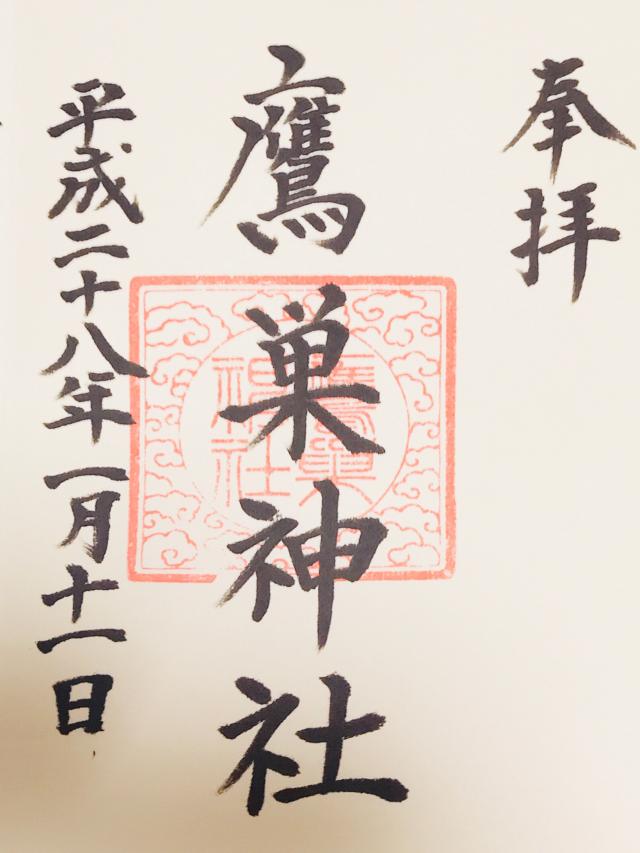 奉拝
鷹巣神社
鷹巣
神社
平成二十八年一月十一日